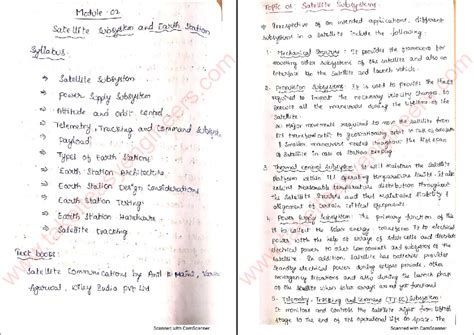 Module - 02
Satellite Subsystem and Earth Station
Syllabus:
⇒ Satellite Subsystem
⇒ Power Supply Subsystem
⇒ Attitude and orbit control
⇒ Telemetry, Tracking and Command Subsystem
⇒ Payload
⇒ Types of Earth Station
⇒ Earth Station Architecture
⇒ Earth Station Design Considerations
⇒ Earth Station Testing
⇒ Earth Station Hardware
⇒ Satellite tracking
Text books:
Satellite Communications by Anil K Maini,
Agarwal, Wiley India Pvt Ltd
Scanned with CamScanner
Topic 01: Satellite Subsystems
Irrespective of an intended application, different
Subsystem in a Satellite include the following:
1. Mechanical Structure: It provides the framework for
mounting other Subsystems of the satellite and also an
interface b/w the Satellite and launch vehicle.
2. Propulsion Subsystem: It is used to provide the thrust
required to impart the necessary velocity changes to
execute all the maneuvers during the lifetime of the
Satellite.
Major movement required to move the satellite from
its transfer orbit to geostationary orbit in case of
Smaller maneuvers needed throughout the life span
of Satellite in case of station keeping
3. Thermal control Subsystem: It will maintain the Satellite
platform within its operating temperature limits
reasonable temperature distribution throughout
the Satellite structure and thus maintains stability &
alignment of certain critical equipments.
4. Power Supply Subsystem: The primary function of the
is to collect the solar energy, transform it to electrical
power with the help of arrays of solar cells and
power to other components and subsystems of the
satellite. In addition, Satellite has batteries provides
standby electrical power during eclipse periods, other
emergency situations and also during the launch phase
of the satellite when solar arrays are not yet function
5. Telemetry, Tracking and Command (TT&C) Subsystem:
It monitors and controls the satellite right from
stage to the end of the operational life in space. The
Scanned with CamScanner